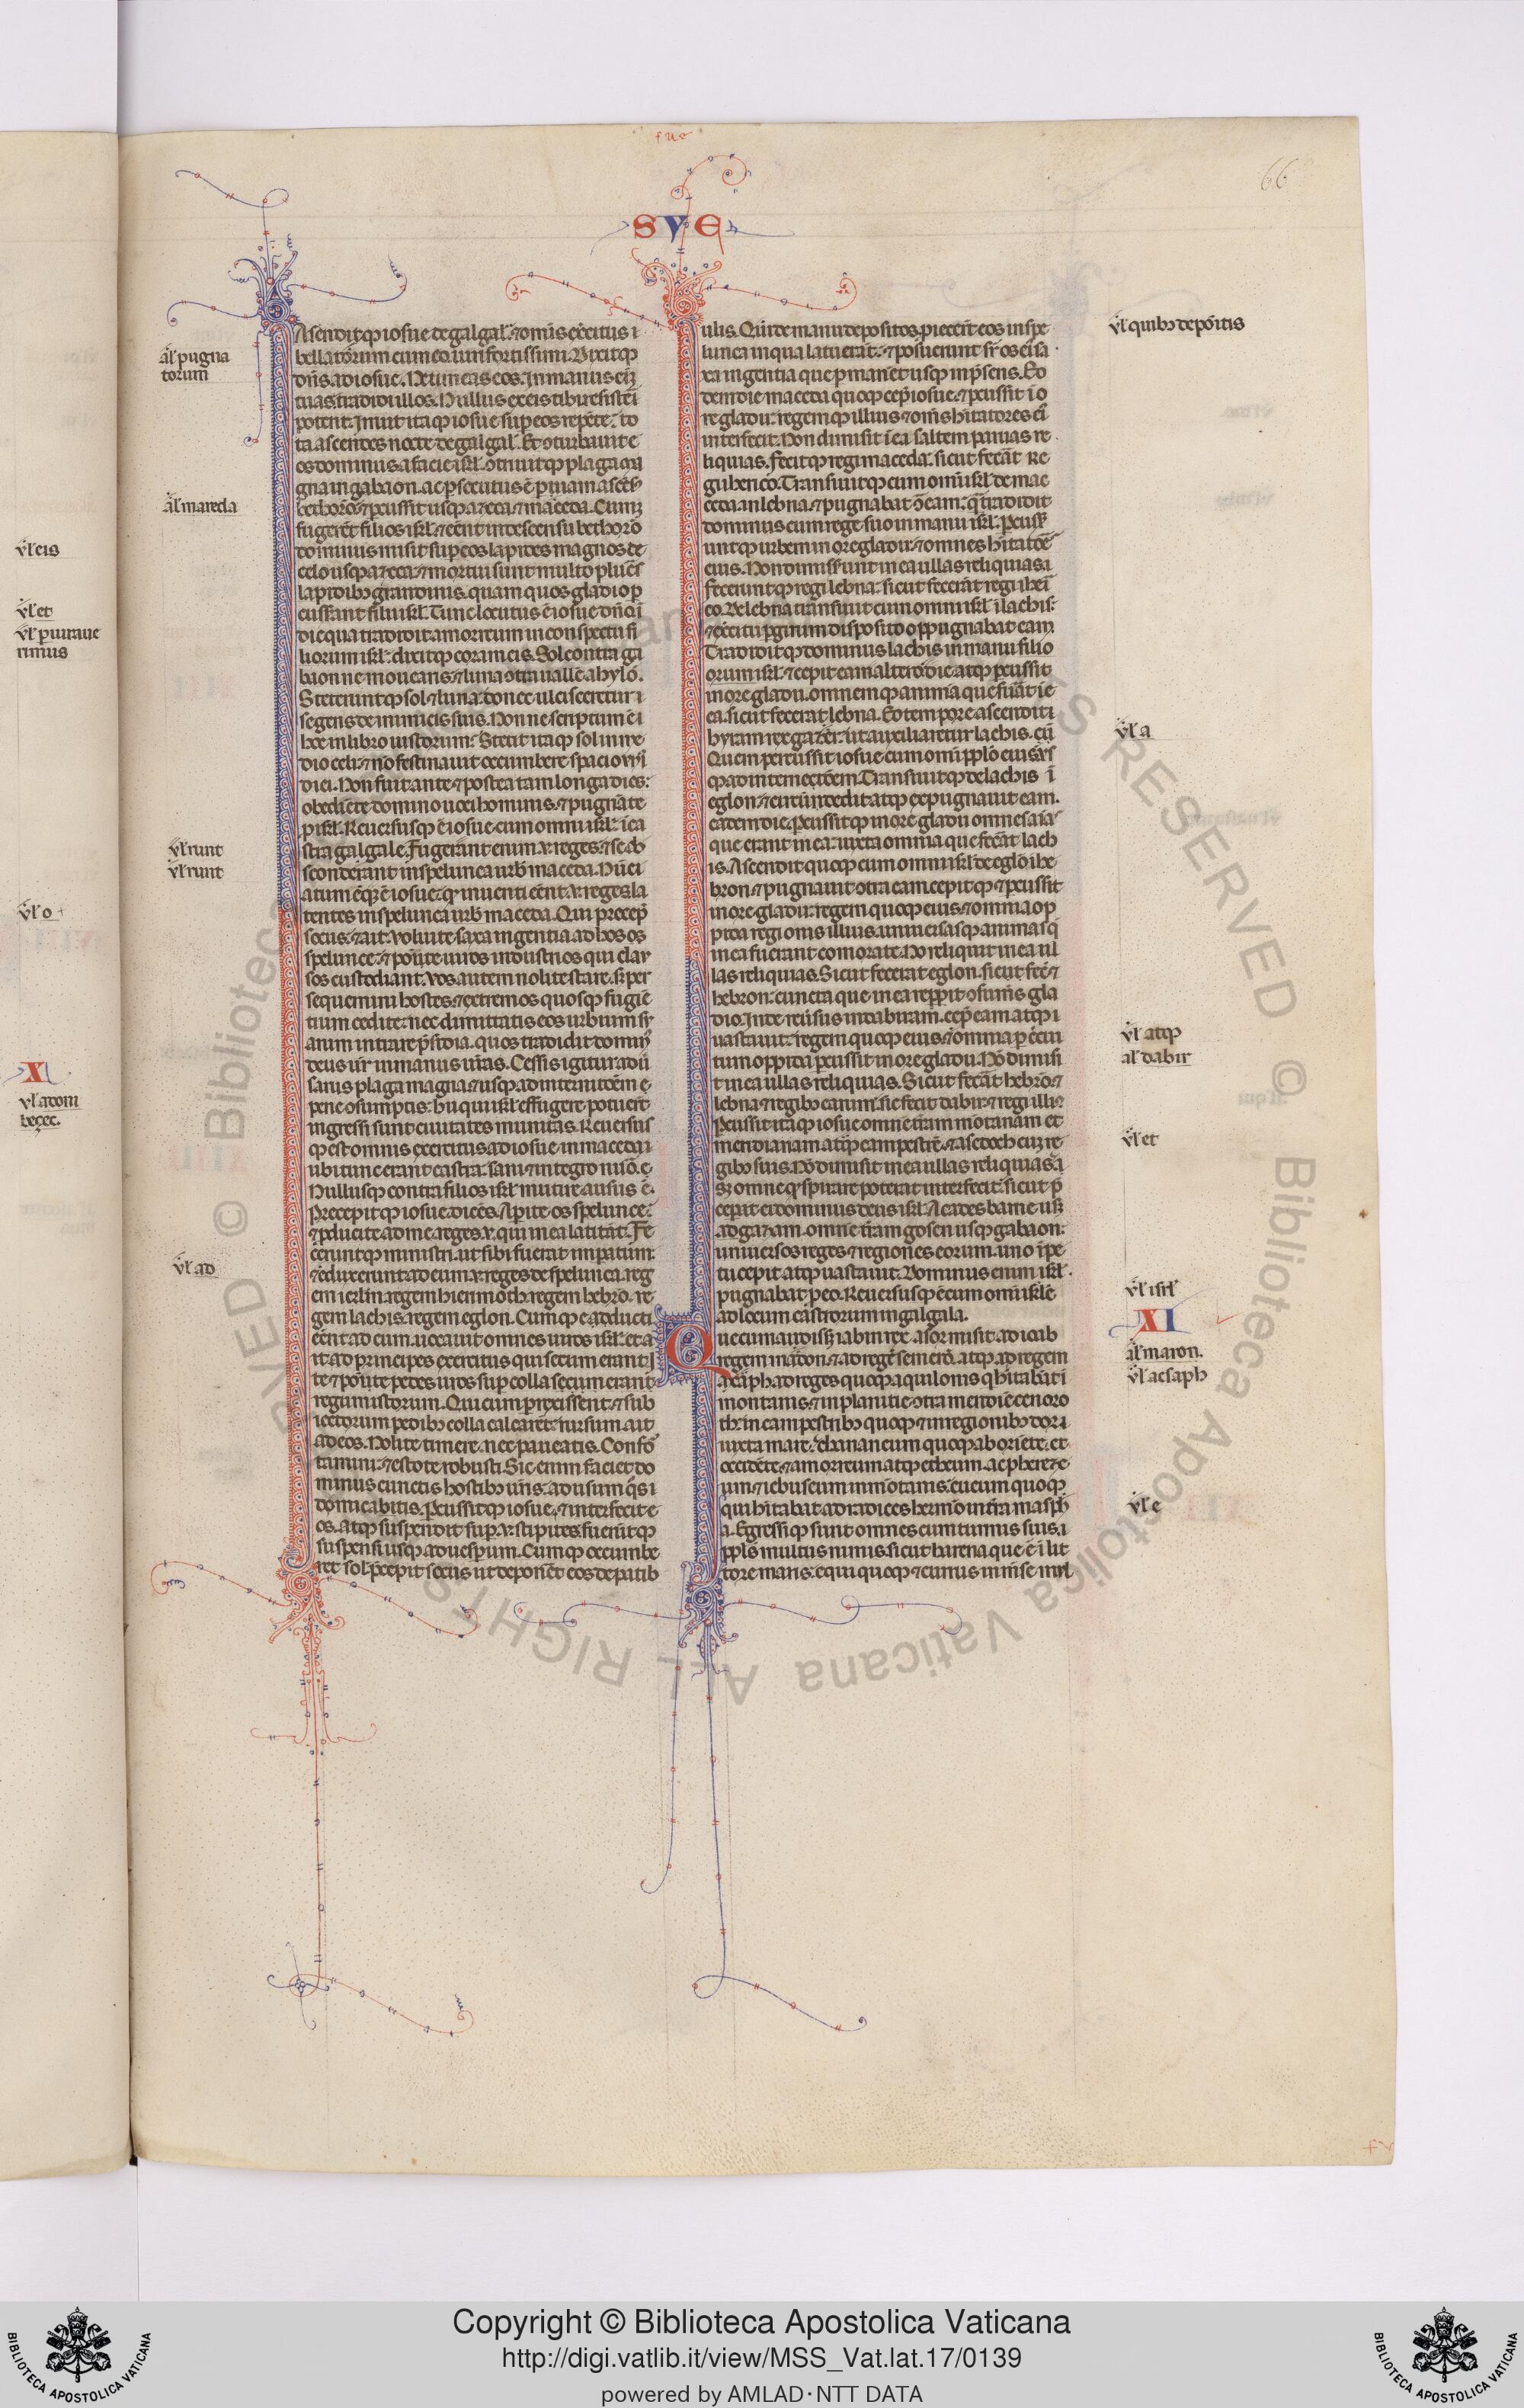 fue
66
SVE
Asenditq; iosue de galgal. ⁊ omīs exercitus
bellatorum cum eo uiri fortissimi. Dixitq;
dn̄s ad iosue. Ne timeas eos. In manus eni
tuas tradidi illos. Nullus ex eis tibi resistere
poterit. Irruit itaq; iosue sup eos repēte. to
ta ascendēs nocte de galgal. Et ↄturbauit e
os dominus a facie isrl. ↄtriuitq; plaga ma
gna in gabaon. ac psecutus ē p uiam ascēs
bethorō. ⁊ pcussit usq; azeca ⁊ maceda. Cumq;
fugerēt filios isrl. ⁊ eēnt in descensu bethorō
dominus misit sup eos lapides magnos de
celo usq; azeca. ⁊ mortui sunt multo plures
lapidibꝫ grandinis. quam quos gladio p
cusserant filii isrl. Tunc locutus ē iosue dn̄o i
die qua tradidit amorreum in conspectu fi
liorum isrl. dixitq; coram eis. Sol contra ga
baon ne mouearis. ⁊ luna ↄtra uallē ahylō.
Steteruntq; sol ⁊ luna. donec ulcisceretur
se gens de inimicis suis. Nonne scriptum ē i
hoc in libro iustorum. Stetit itaq; sol in me
dio celi. ⁊ nō festinauit occumbere spacio uni
diei. Non fuit ante ⁊ postea tam longa dies.
obediēte domino uoci hominis. ⁊ pugnāte
p isrl. Reuersusq; ē iosue cum omni isrl. i ca
stra galgale. Fugerant enim .v. reges. ⁊ se ab
sconderant in spelunca urb̄ maceda. Nūci
atumq; ē iosue. q inuenti eēnt .v. reges la
tentes in spelunca urb̄ maceda. Qui precep
socus. ⁊ ait. Voluite saxa ingentia ad hos os
spelunce. ⁊ ponite uiros industrios qui clau
sos custodiant. Vos autem nolite stare. sꝫ per
sequemini hostes. ⁊ extremos quosq; fugiē
tium cedite. nec dimittatis eos urbium su
arum intrare psidia. quos tradidit dominꝰ
deus ur̄ in manus uras. Cesis igitur aduer
sariis plaga magna. ⁊ usq; ad internitōem e
pene ↄsumptis. hii qui isrl. effugere potuert
ingressi sunt ciuitates munitas. Reuersus
q; est omnis exercitus ad iosue in maceda
ubi tunc erant castra. sani ⁊ integro nūo. e
Nullusq; contra filios isrl. mutire ausus ē.
Precepitq; iosue dicēs. Aperite os spelunce.
⁊ pducite ad me reges .v. qui in ea latitāt. Fe
ceruntq; ministri. ut sibi fuerat impatum.
⁊ eduxerunt ad eum .v. reges de spelunca. reg
em ierlm. regem hierimoth. regem hebrō. re
gem lachis. regem eglon. Cumq; educti
eēnt ad eum. uocauit omnes uiros isrl. et a
it ad principes exercitus qui secum erant. I
te ⁊ ponite pedes uros sup colla secum erant
regum istorum. Qui cum prexissent. ⁊ sub
iectorum pedibꝫ colla calcarēt. rursum ait
ad eos. Nolite timere. nec paueatis. Confor
tamini. ⁊ estote robusti. Sic enim faciet do
minus cunctis hostibꝫ uris. aduersum q̄s
dimicabitis. Pcussitq; iosue. ⁊ interfecit e
os. atq; suspendit sup .v. stipites. fuerūtq;
suspensi usq; ad uesperum. Cumq; occumbe
ret sol. pcepit sociis ut deponēt eos de patib
ulis. Qui de manu depositos. piecerīt eos in spe
luncam in qua latuerāt. ⁊ posuerunt sr̄ os ei sa
xa ingentia que pmanēt usq; in psens. Eo
dem die maceda quoq; cepit iosue. ⁊ pcussit i o
re gladii. regem q; illius. ⁊ om̄s hītatores ei
interfecit. Non dimisit i ea saltem paruas re
liquias. Fecitq; regi maceda. sicut fecāt re
gi iherico. Transiuitq; cum omni isrl. de mac
ceda in lebna. ⁊ pugnabat ↄ eam. q̄ tradidit
dominus cum rege suo in manu isrl. Pcusser
untq; urbem in ore gladii. ⁊ omnes hītatōes
eius. Non dimiserunt in ea ullas reliquias.
feceruntq; regi lebna. sicut fecerāt regi heri
co. De lebna transiuit cum omni isrl. i lachis.
⁊ exercitu p girum disposito oppugnabat eam
Tradiditq; dominus lachis in manu filio
orum isrl. ⁊ cepit eam altero die. atq; pcussit
in ore gladii. omnemq; animā que fuāt i e
ea. sicut fecerat lebna. Eo tempore ascendit
hyram rex gazer. ut auxiliaretur lachis. cū
Quem percussit iosue cum omi pplo eius us
q; ad internectōem. Transiuitq; de lachis i
eglon. ⁊ circūdedit atq; expugnauit eam.
eadem die. Pcussitq; in ore gladii omnes aīas
que erant in ea. iuxta omnia que fecāt lach
is. Ascendit quoq; cum omni isrl. de eglō i he
bron. ⁊ pugnauit ↄtra eam. cepitq; ⁊ pcussit
in ore gladii. regem quoq; eius. ⁊ omnia op
pida regionis illius. uniuersasq; animas q̄
in ea fuerant comorate. Nō reliquit in ea ul
las reliquias. Sicut fecerat eglon. sic fecit ⁊
hebron. cuncta que in ea reppit ↄsumēs gla
dio. Inde reuersus in dabiram. cepit eam atq;
uastauit. regem quoq; eius. ⁊ omnia p circu
itum oppida pcussit in ore gladii. Nō dimisi
t in ea ullas reliquias. Sicut fecāt hebrō. ⁊
lebna ⁊ regibꝫ earum. sic fecit dabir. ⁊ regi illiꝰ
Pcussit itaq; iosue omnē tram mōtanam et
meridianam atq; campestrē. ⁊ asedoch cum re
gibꝫ suis. Nō dimisit in ea ullas reliquias.
sꝫ omne q spirare poterat interfecit. sicut p
cepit ei dominus deus isrl. A cades barne usq;
ad gazam. omnē tram gosen usq; gabaon.
uniuersos reges ⁊ regiones eorum. uno ipe
tu cepit atq; uastauit. Dominus enim isrl.
pugnabat p eo. Reuersusq; ē cum omi isrlē
ad locum castrorum in galgala.
Que cum audissꝫ iabin rex asor. misit ad iobab
regem madon. ⁊ ad regē semerō. atq; ad regem
acsaph. ad reges quoq; aquilonis. q̄ hītabāt i
montanis. ⁊ in planitie ↄtra meridiē cenero
th. in campestribꝫ quoq; ⁊ in regionibꝫ dor
iuxta mare. chananeum quoq; ab oriēte. et
occidēte. ⁊ amorreum atq; etheum. ac pherez e
um. ⁊ iebuseum in mōtanis. eueum quoq;
qui hītabat ad radices hermō in tra masph
a. Egressiq; sunt omnes cum turmis suis.
ppls multus nimis. sicut harena que ē i lit
tore maris. equi quoq; ⁊ currus inmēse ml
al pugna
torum
al maceda
ul runt
ul runt
ul ad
ul quibꝫ depōitis
ul a
ul atq;
al dabir
ul et
ul isrl
XI
al maron.
ul acsaph
ul e
ul eis
ul et
ul o
X
Copyright © Biblioteca Apostolica Vaticana
http://digi.vatlib.it/view/MSS_Vat.lat.17/0139
powered by AMLAD·NTT DATA
BIBLIOTECA APOSTOLICA VATICANA
BIBLIOTECA APOSTOLICA VATICANA